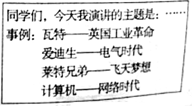 同学们，今天我演讲的主题是：……
事例：瓦特——英国工业革命
爱迪生——电气时代
莱特兄弟——飞天梦想
计算机——网络时代